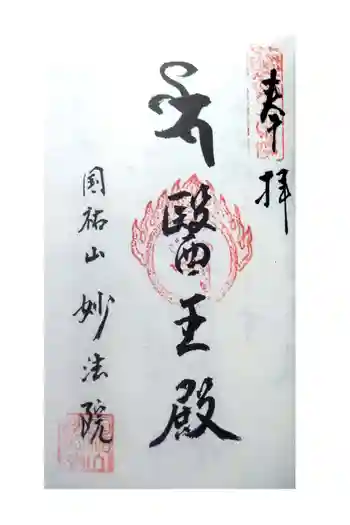 奉拝
醫王殿
国祐山 妙法院